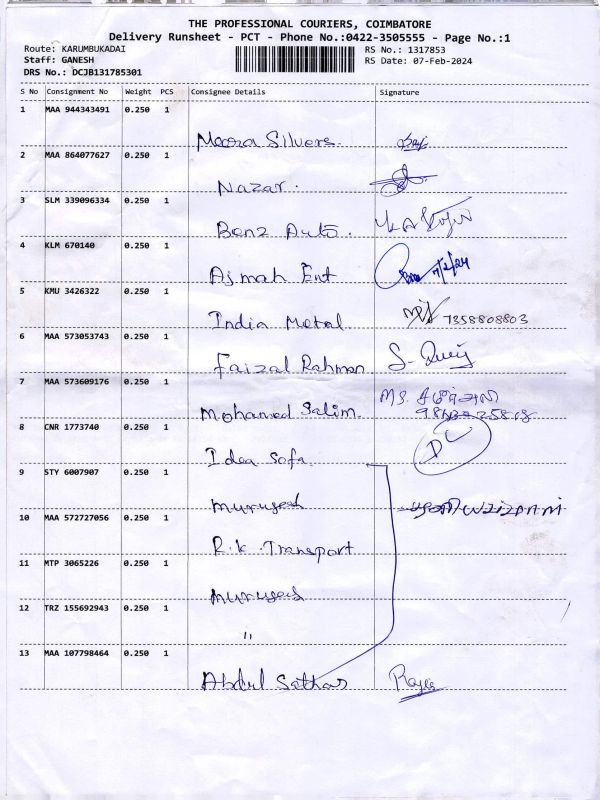 THE PROFESSIONAL COURIERS, COIMBATORE
Delivery Runsheet - PCT - Phone No.:0422-3505555 - Page No.:1
Route: KARUMBUKADAI
Staff: GANESH
DRS No.: DCJB131785301
RS No.: 1317853
RS Date: 07-Feb-2024
S No Consignment No Weight PCS Consignee Details Signature
1 MAA 944343491 0.250 1
Meera Silvers.
2 MAA 864077627 0.250 1
Nazar.
3 SLM 339096334 0.250 1
Benz Auto.
4 KLM 670140 0.250 1
Ajmah Ent 7/2/24
5 KMU 3426322 0.250 1
India Metal 7358808803
6 MAA 573053743 0.250 1
Faizal Rahman S.
7 MAA 573609176 0.250 1
MS.
Mohamed Salim.
8 CNR 1773740 0.250 1
Idea Sofa.
9 STY 6007907 0.250 1
Murugesh
10 MAA 572727056 0.250 1
R.K. Transport
11 MTP 3065226 0.250 1
Murugesh
12 TRZ 155692943 0.250 1
"
13 MAA 107798464 0.250 1
Abdul Sathar